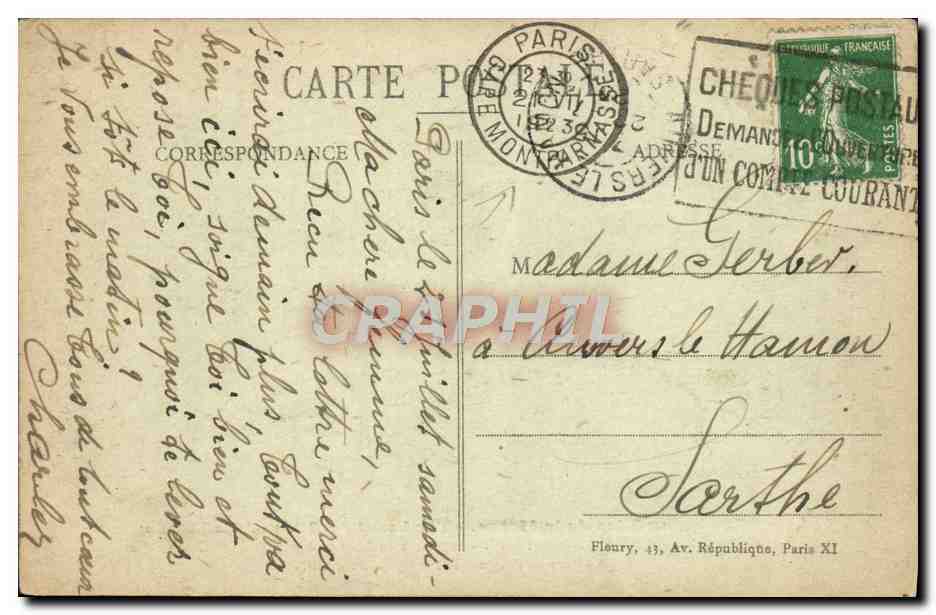 CARTE POSTALE
CORRESPONDANCE
ADRESSE
PARIS-
GARE MONTPARNASSE
RÉPUBLIQUE FRANÇAISE
10
POSTES
CHEQUES POSTAUX
DEMANDEZ L'OUVERTURE
d'UN COMPTE COURANT
Madame Gerber.
à Auvers le Hamon
Sarthe
Fleury, 43, Av. République, Paris XI
Paris le 2 Juillet samedi-
Ma chere femme,
Recu ta lettre merci
j'ecrirai demain plus, tout va
bien ici, soigne toi bien et
repose toi, pourquoi te lever
si tôt le matin?
Je vous embrasse tous de tout cœur
Charles
CRAPHIL